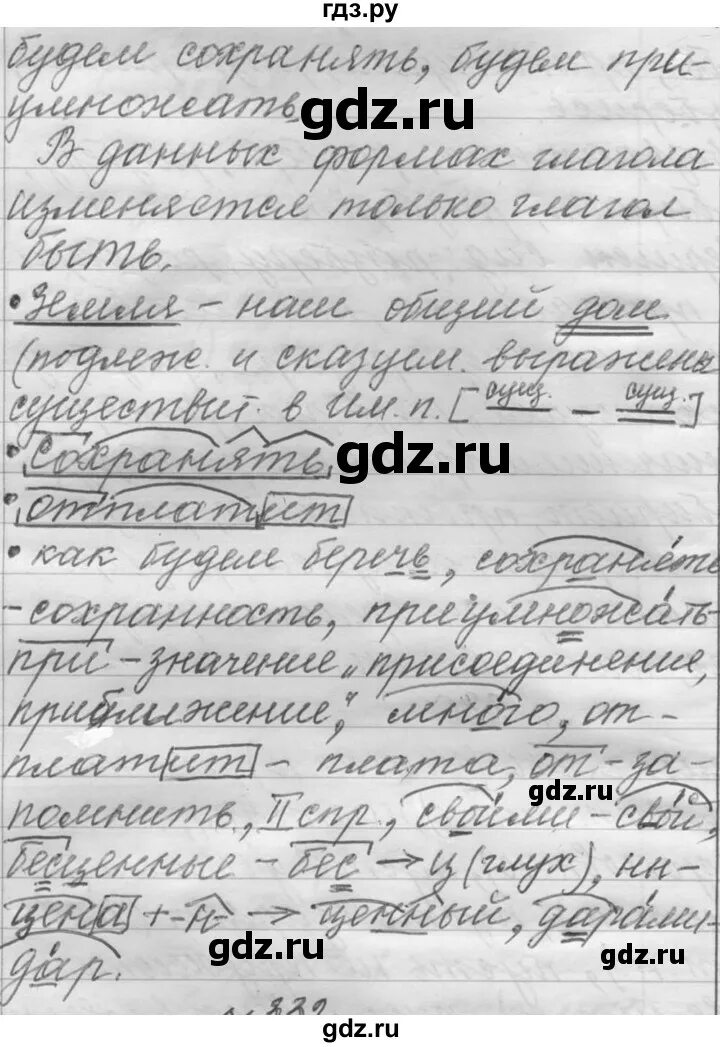 гдз.ру
будем сохранять, будем при-
умножать.
gdz.ru
В данных формах глагола
изменяется только глагол
быть.
• Земля – наш общий дом
(подлеж. и сказуем. выражены
существит. в Им. п. [сущ. – сущ.]
• сохранять
gdz.ru
• отплатит
• как будем беречь, сохранять
-сохранность, приумножать-
при-значение „присоединение,
приближение", много, от-
платит – плата, от-за-
gdz.ru
помнить, II спр., своими-свой,
бесценные – бес → ц (глух), нн-
цена + -н- → ценный, дарами-
gdz.ru
gdz.ru
дар.
№332
gdz.ru